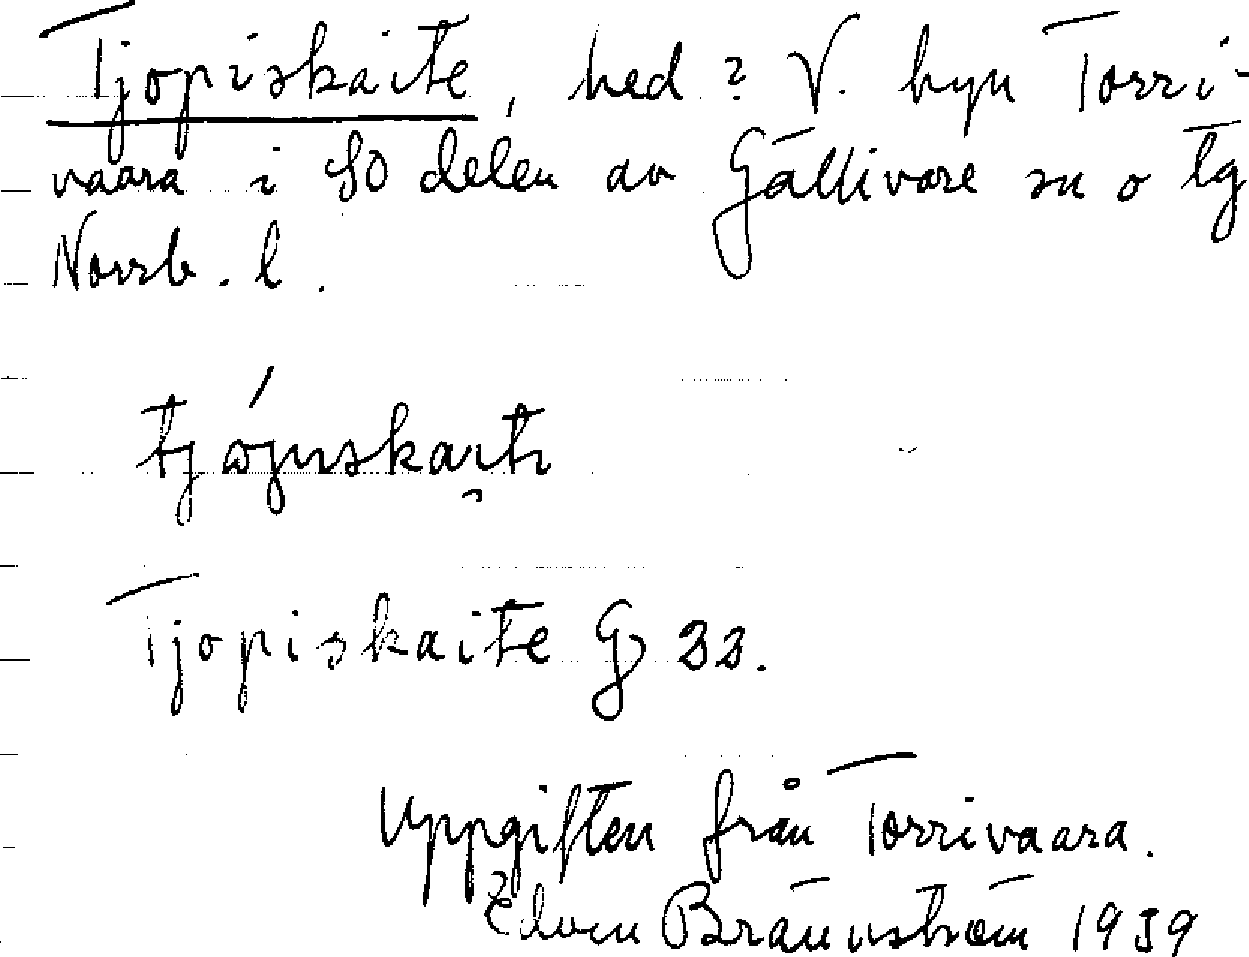 Tjopiskaite, hed? V. byn Torri-
vaara i SO delen av Gällivare sn o lg
Norrb. l.
Tjopiskaite G 33.
Uppgiften från Torrivaara.
Edvin Brännström 1939